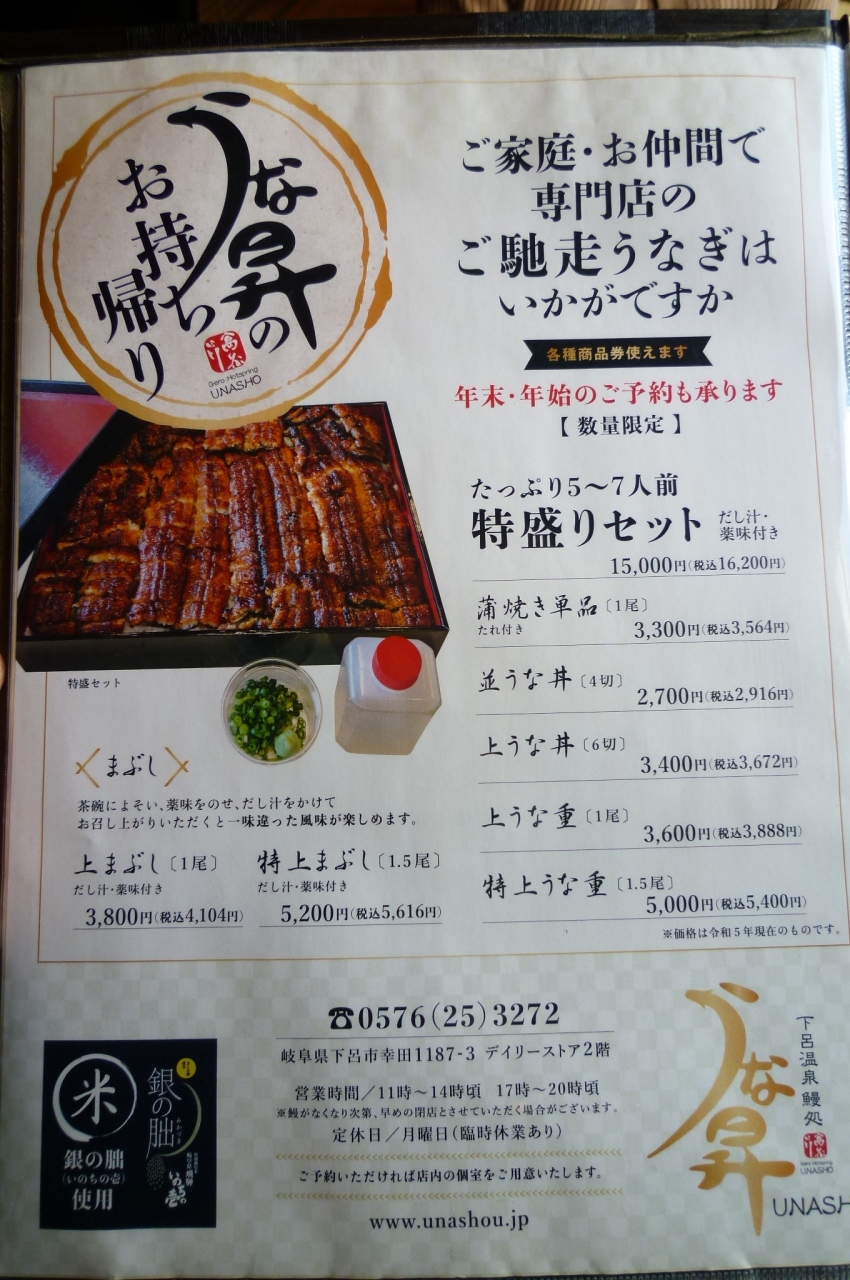 うな昇の
お持ち
帰り
Gero Hotspring
UNASHO
ご家庭・お仲間で
専門店の
ご馳走うなぎは
いかがですか
各種商品券使えます
年末・年始のご予約も承ります
【数量限定】
たっぷり5〜7人前
特盛りセット だし汁・薬味付き
15,000円(税込16,200円)
蒲焼き単品〔1尾〕
たれ付き
3,300円(税込3,564円)
並うな丼〔4切〕
2,700円(税込2,916円)
上うな丼〔6切〕
3,400円(税込3,672円)
上うな重〔1尾〕
3,600円(税込3,888円)
特上うな重〔1.5尾〕
5,000円(税込5,400円)
※価格は令和5年現在のものです。
特盛セット
まぶし
茶碗によそい、薬味をのせ、だし汁をかけて
お召し上がりいただくと一味違った風味が楽しめます。
上まぶし〔1尾〕
だし汁・薬味付き
3,800円(税込4,104円)
特上まぶし〔1.5尾〕
だし汁・薬味付き
5,200円(税込5,616円)
米
銀の朏
(いのちの壱)
使用
銀の朏
みかづき
いのちの壱
☎0576(25)3272
岐阜県下呂市幸田1187-3 デイリーストア2階
営業時間/11時〜14時頃 17時〜20時頃
※鰻がなくなり次第、早めの閉店とさせていただく場合がございます。
定休日/月曜日(臨時休業あり)
ご予約いただければ店内の個室をご用意いたします。
www.unashou.jp
うな昇
下呂温泉 鰻処
Gero Hotspring
UNASHO
UNASH